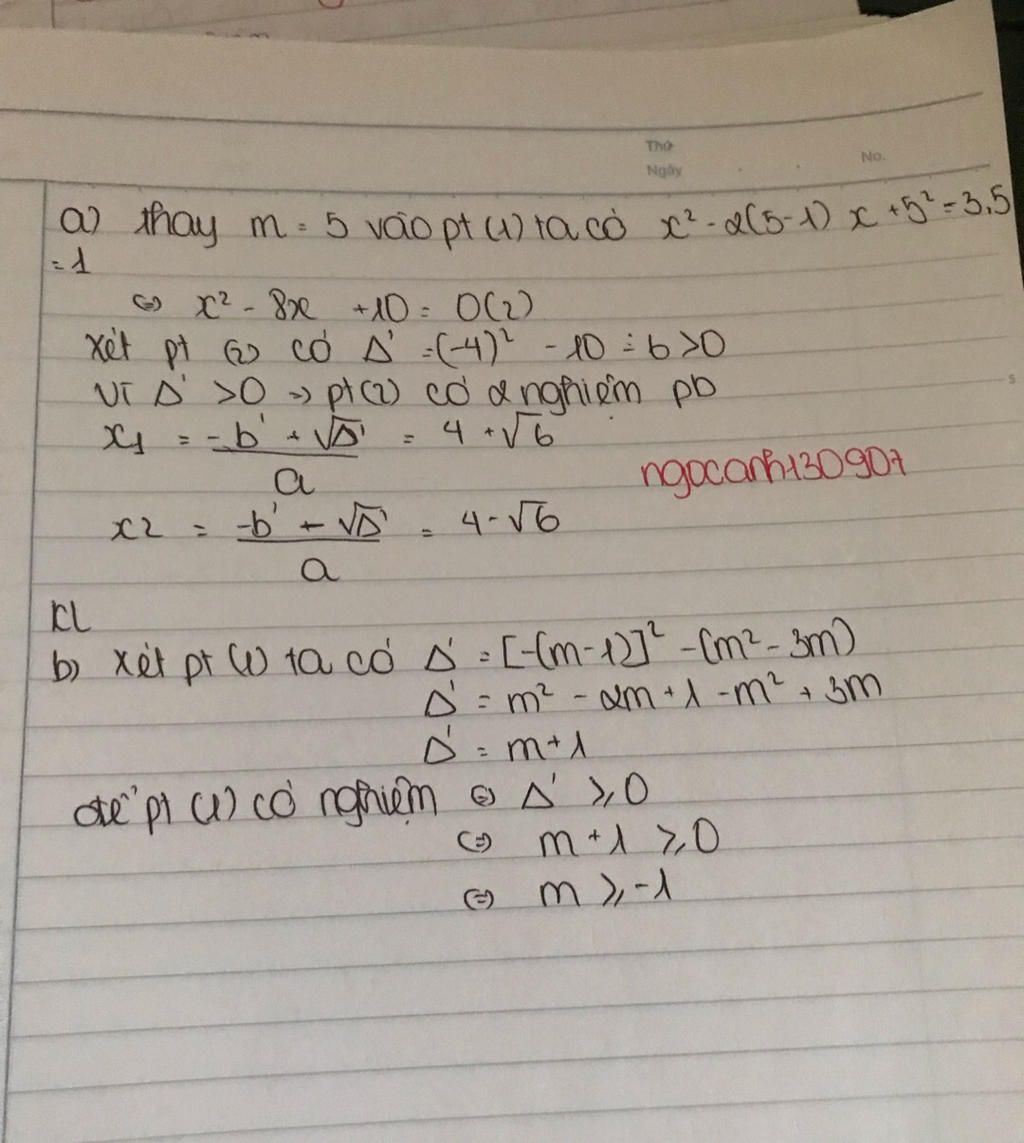 Thứ
Ngày
No.
a) thay m = 5 vào pt (1) ta có x² - 2(5-1) x + 5² = 3.5
= 1
⇔ x² - 8x + 10 = 0 (2)
xét pt (2) có Δ' = (-4)² - 10 = 6 > 0
Vì Δ' > 0 => pt (2) có 2 nghiệm pb
x1 = -b' + √Δ' / a = 4 + √6
ngocanh130907
x2 = -b' - √Δ' / a = 4 - √6
KL
b) Xét pt (1) ta có Δ' = [-(m-1)]² - (m² - 3m)
Δ' = m² - 2m + 1 - m² + 3m
Δ' = m + 1
để pt (1) có nghiệm ⇔ Δ' ⩾ 0
⇔ m + 1 ⩾ 0
⇔ m ⩾ -1